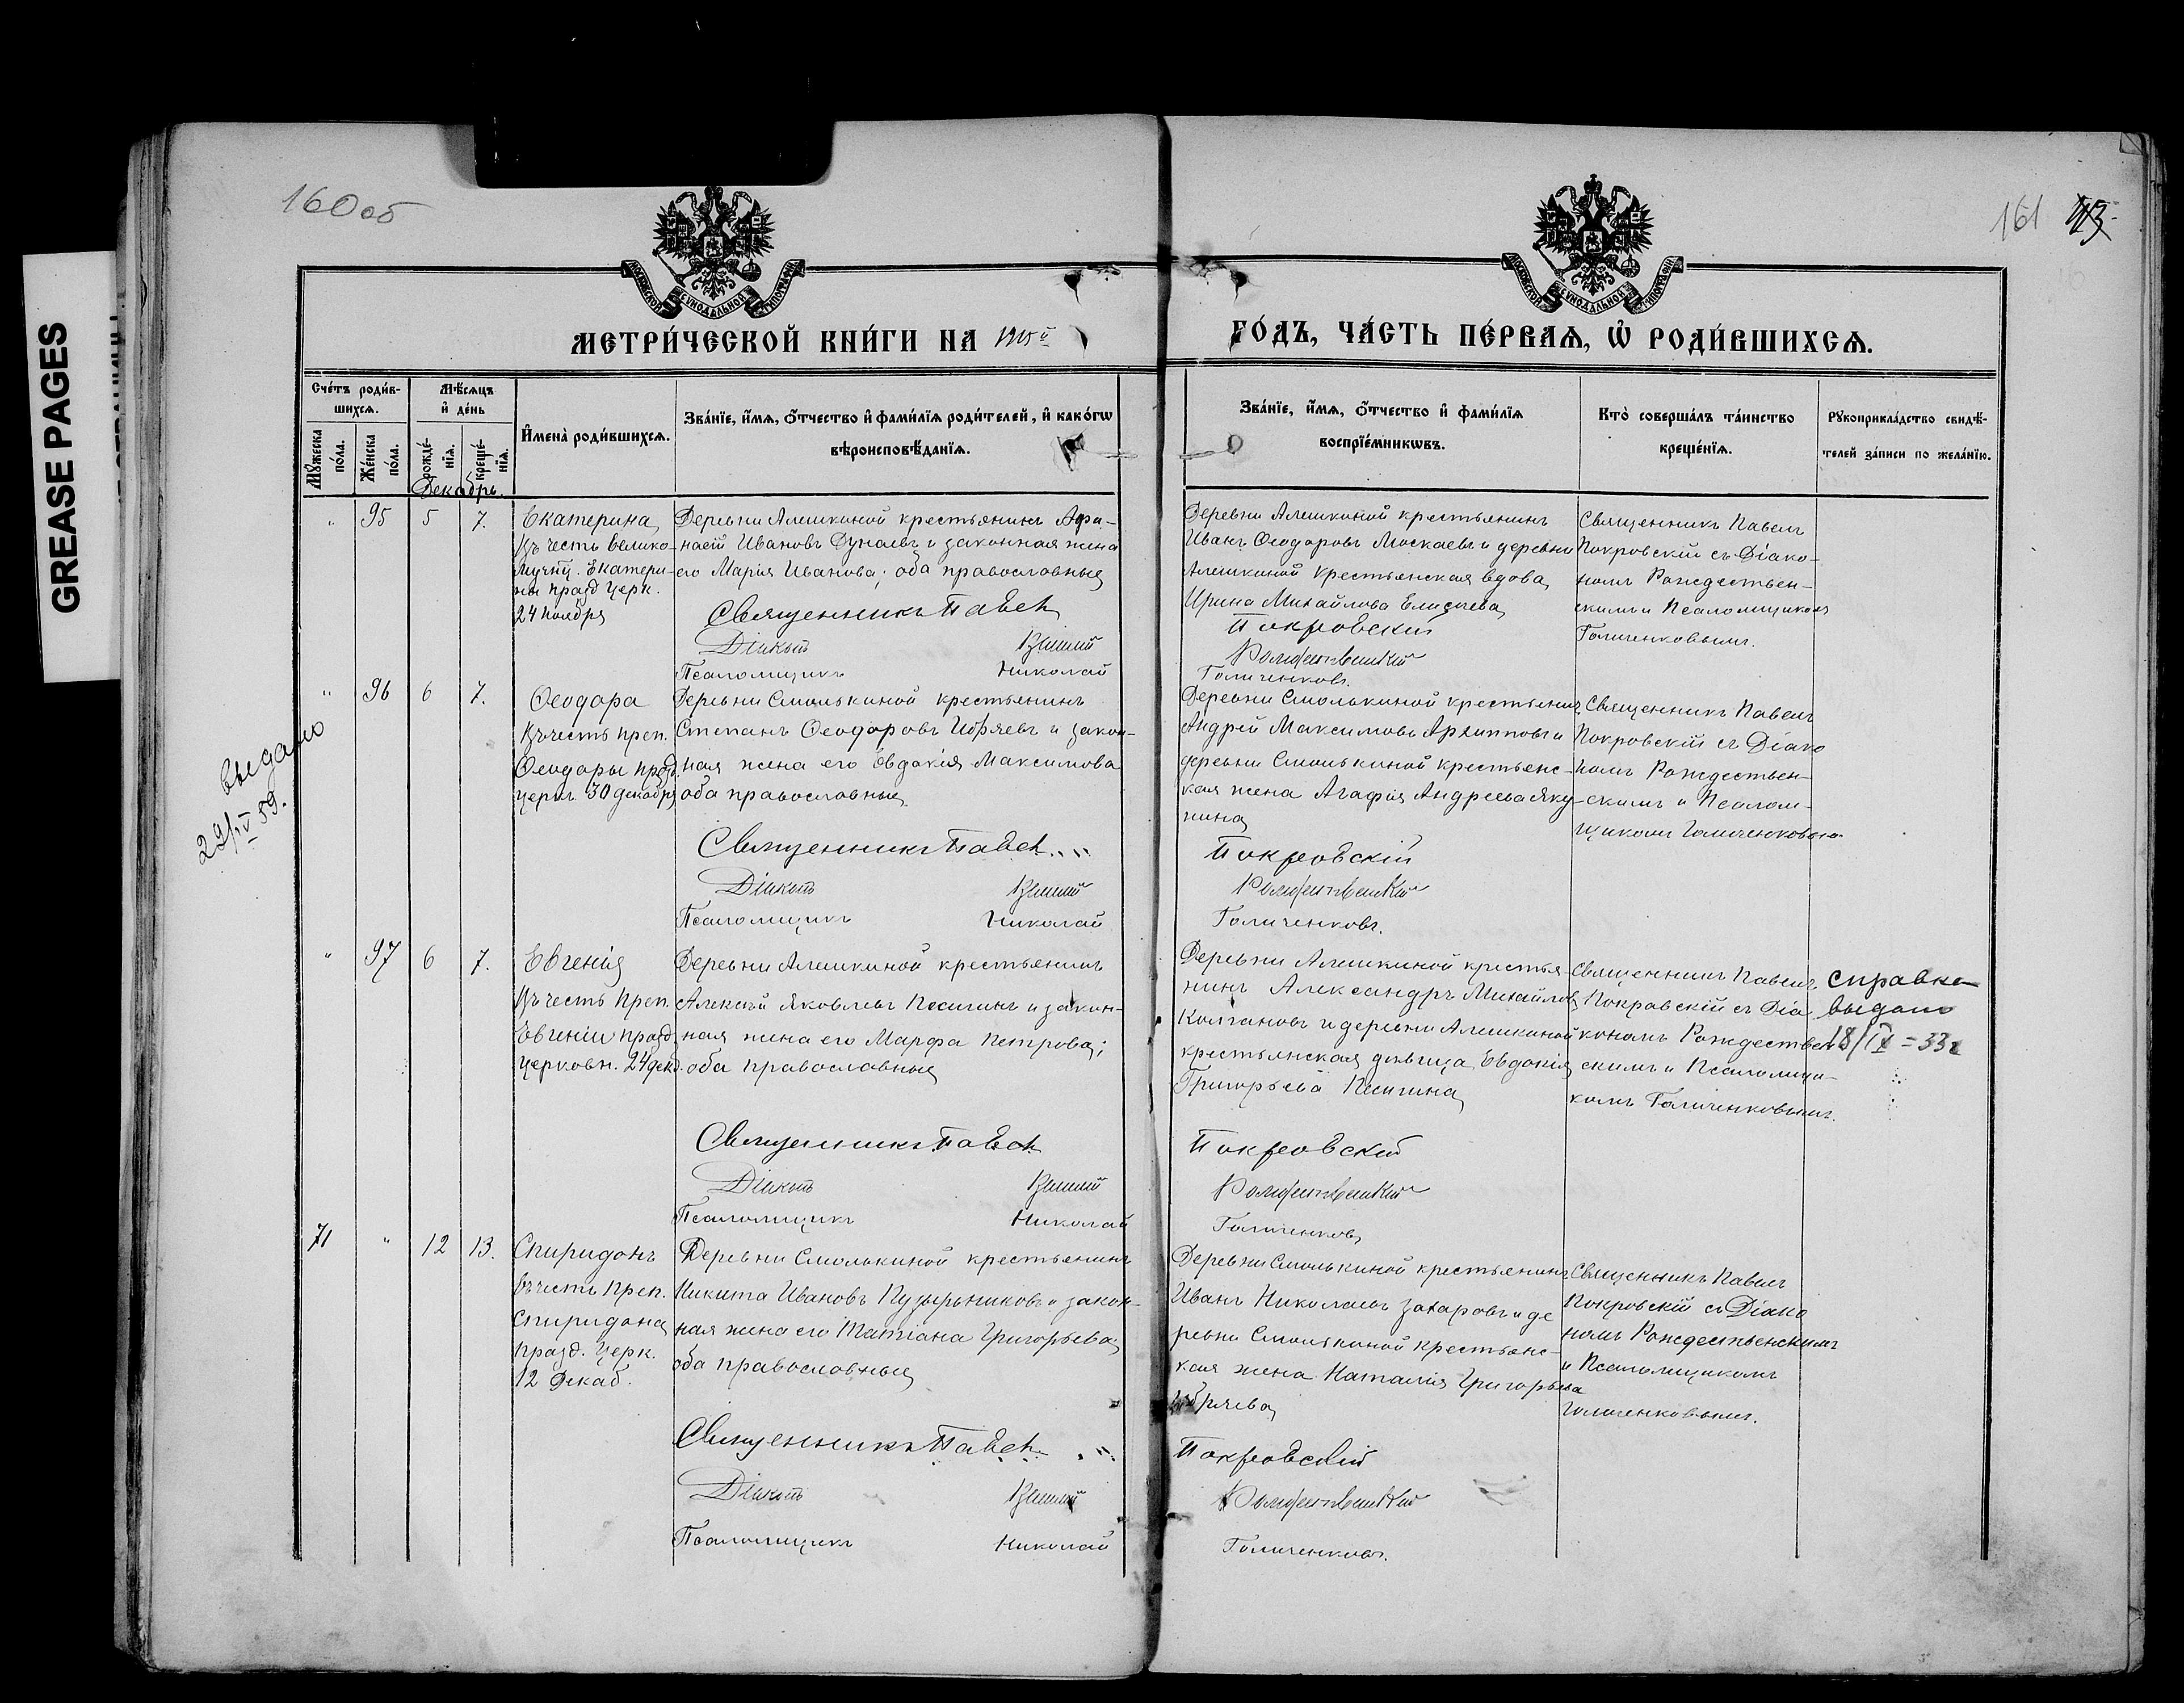 GREASE PAGES
160об
161
МОСКОВСКОЙ СѴНОДАЛЬНОЙ ТИПОГРАФІИ
МОСКОВСКОЙ СѴНОДАЛЬНОЙ ТИПОГРАФІИ
МЕТРИ́ЧЕСКОЙ КНИ́ГИ НА 1915й
ГО́ДЪ, ЧА́СТЬ ПЕ́РВАѦ, Ѽ РОДИ́ВШИХСѦ.
Сче́тъ роди́в-
шихсѧ.
Мꙋ́жеска
по́ла.
Же́нска
по́ла.
Мѣ́сѧцъ
и҆ де́нь
рожде́-
нїѧ.
креще́-
нїѧ.
И҆мена̀ роди́вшихсѧ.
Зва́нїе, и҆́мѧ, ѻ҆́тчество и҆ фами́лїѧ роди́телей, и҆ како́гѡ
вѣроисповѣ́данїѧ.
Зва́нїе, и҆́мѧ, ѻ҆́тчество и҆ фами́лїѧ
воспрїе́мникѡвъ.
Кто̀ соверша́лъ та́инство
креще́нїѧ.
Рꙋкоприкла́дство свидѣ́-
телей за́писи по жела́нїю.
Декабрь.
" 95 5 7.
Екатерина
Въ честь велико-
мучен. Екатери-
ны празд церк.
24 ноября
Деревни Алешкиной крестьянинъ Афа-
насій Ивановъ Дунаевъ и законная жена
его Марія Иванова; оба православные
Священникъ Павелъ
Діаконъ
Псаломщикъ Николай
Деревни Алешкиной крестьянинъ
Иванъ Ѳеодоровъ Москаевъ и деревни
Алешкиной крестьянская вдова
Ирина Михайлова Елисѣева
Покровскій
Рождественскій
Голиченковъ.
Священникъ Павелъ
Покровскій съ Діако-
номъ Рождествен-
скимъ и Псаломщикомъ
Голиченковымъ.
" 96 6 7.
выдано
29/IV 59.
Ѳеодора
Въ честь преп.
Ѳеодоры празд.
церк. 30 декабря
Деревни Смолькиной крестьянинъ
Степанъ Ѳеодоровъ Ибряевъ и закон-
ная жена его Евдокія Максимова
оба православные
Священникъ Павелъ
Діаконъ
Псаломщикъ Николай
Деревни Смолькиной крестьянинъ
Андрей Максимовъ Архиповъ и
деревни Смолькиной крестьянс-
кая жена Агафія Андреева Яку-
нина
Покровскій
Рождественскій
Голиченковъ.
Священникъ Павелъ
Покровскій съ Діако
номъ Рождествен-
скимъ и Псалом-
щикомъ Голиченковым.
" 97 6 7.
Евгенія
Въ честь преп.
Евгеніи празд
церковн. 24 дек.
Деревни Алешкиной крестьянинъ
Алексѣй Яковлевъ Песигинъ и закон-
ная жена его Марфа Петрова;
оба православные
Священникъ Павелъ
Діаконъ
Псаломщикъ Николай
Деревни Алешкиной крестья-
нинъ Александръ Михайловъ
Колгановъ и деревни Алешкиной
крестьянская дѣвица Евдокія
Григорьева Песигина
Покровскій
Рождественскій
Голиченковъ
Священникъ Павелъ
Покровскій съ Діа
кономъ Рождествен
скимъ и Псаломщи-
комъ Голиченковымъ.
справка
выдана
18/IX = 33г
71 " 12 13.
Спиридонъ
въ честь преп.
Спиридона
празд. церк.
12 Декаб.
Деревни Смолькиной крестьянинъ
Никита Ивановъ Пузырьниковъ и закон-
ная жена его Татіана Григорьева;
оба православные
Священникъ Павелъ
Діаконъ
Псаломщикъ Николай
Деревни Смолькиной крестьянинъ
Иванъ Николаевъ Захаровъ и де
ревни Смолькиной крестьянс-
кая жена Наталія Григорьева
Ибряева
Покровскій
Рождественскій
Голиченковъ.
Священникъ Павелъ
Покровскій съ Діако
номъ Рождественскимъ
и Псаломщикомъ
Голиченковымъ.